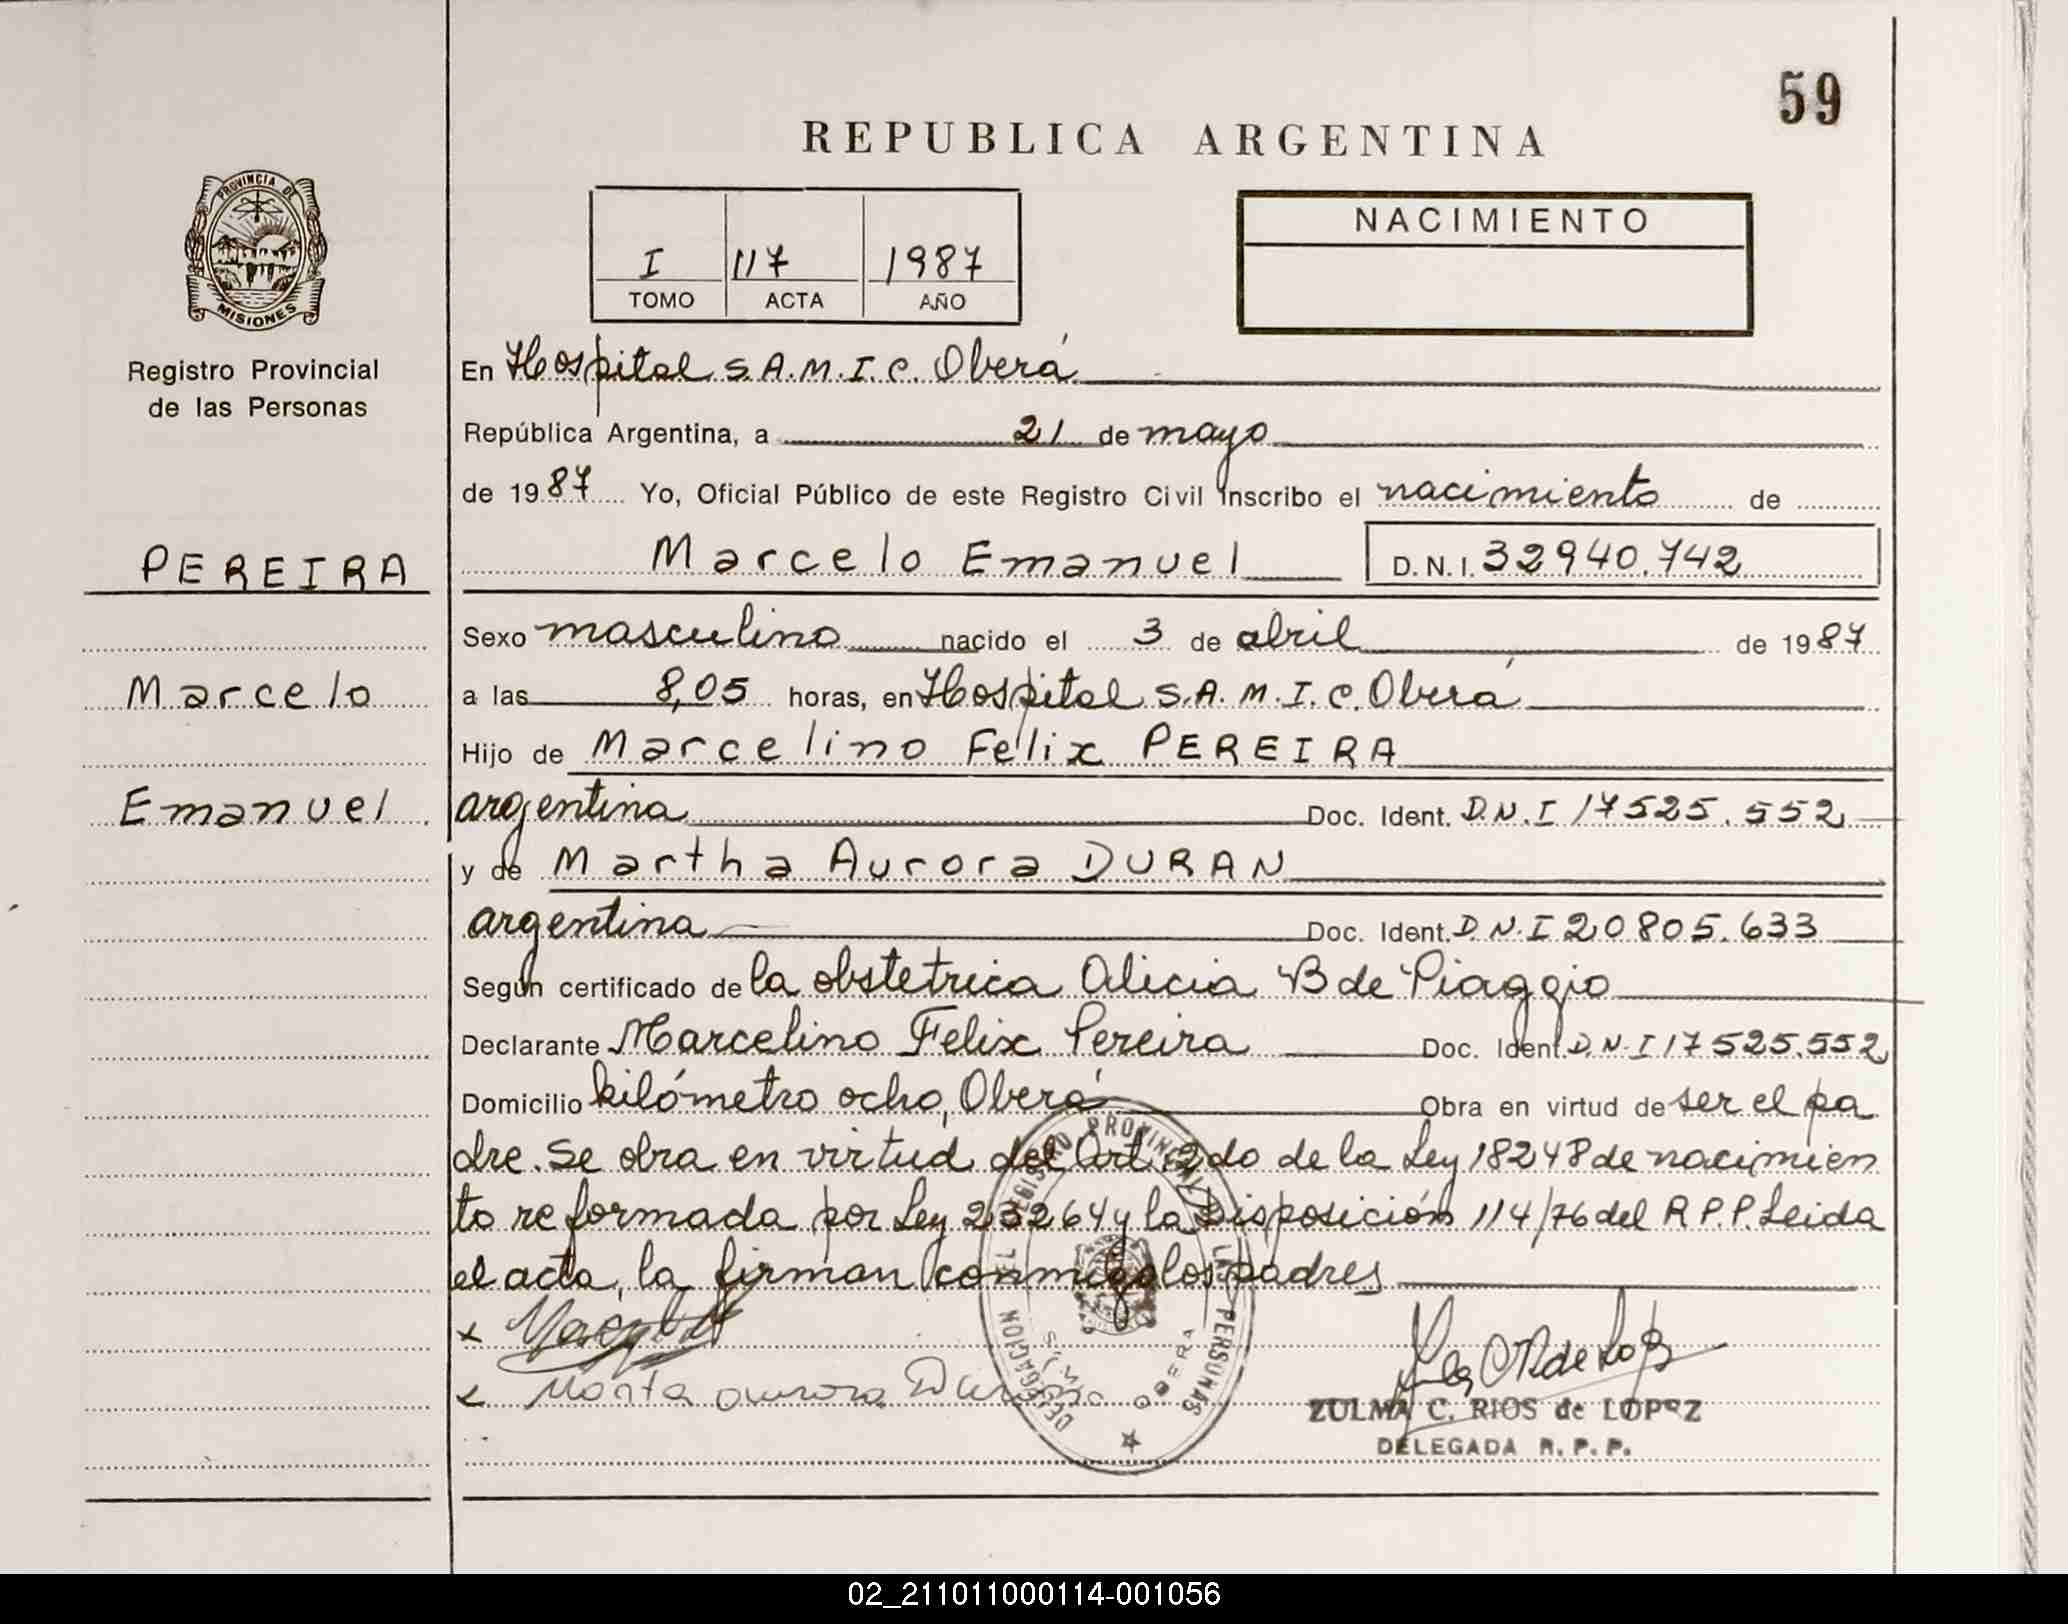 59
REPUBLICA ARGENTINA
PROVINCIA DE
MISIONES
Registro Provincial
de las Personas
I 117 1987
TOMO ACTA AÑO
NACIMIENTO
En Hospital S.A.M.I.C. Oberá
República Argentina, a 21 de mayo
de 1987 Yo, Oficial Público de este Registro Civil Inscribo el nacimiento de
PEREIRA
Marcelo Emanuel D.N.I. 32940.742
Sexo masculino nacido el 3 de abril de 1987
Marcelo
a las 8,05 horas, en Hospital S.A.M.I.C. Oberá
Hijo de Marcelino Felix PEREIRA
Emanuel
argentina Doc. Ident. D.N.I 17525.552
y de Martha Aurora DURAN
argentina Doc. Ident. D.N.I 20805.633
Según certificado de la obstetrica Alicia B de Piaggio
Declarante Marcelino Felix Pereira Doc. Ident. D.N.I 17525.552
Domicilio kilómetro ocho, Oberá Obra en virtud de ser el pa
dre. Se obra en virtud del Art. 2do de la Ley 18248 de nacimien
to reformada por Ley 23264 y la Disposición 114/76 del R.P.P. Leida
el acta, la firman conmigo los padres
DELEGACION DEL REGISTRO PROVINCIAL LAS PERSONAS
OBERA
ZULMA C. RIOS de LOPEZ
DELEGADA R.P.P.
02_211011000114-001056